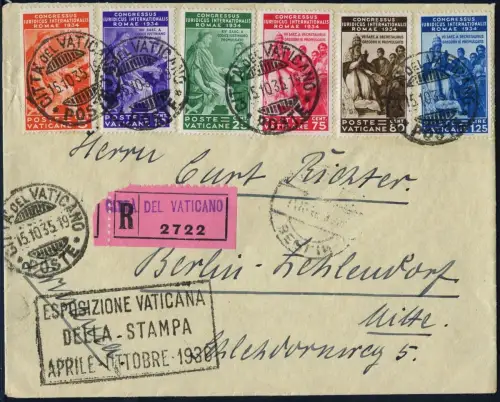 CONGRESSUS IURIDICUS INTERNATIONALIS ROMAE 1934
POSTE VATICANE
CONGRESSUS IURIDICUS INTERNATIONALIS ROMAE 1934
POSTE VATICANE
CONGRESSUS IURIDICUS INTERNATIONALIS ROMAE 1934
POSTE VATICANE 25
CONGRESSUS IURIDICUS INTERNATIONALIS ROMAE 1934
POSTE VATICANE CENT 75
CONGRESSUS IURIDICUS INTERNATIONALIS ROMAE 1934
POSTE VATICANE CENT 80
CONGRESSUS IURIDICUS INTERNATIONALIS ROMAE 1934
POSTE VATICANE LIRE 1,25
CITTÀ DEL VATICANO
15.10.35
POSTE
Herrn Curt Richter
R
CITTÀ DEL VATICANO
2722
CITTÀ DEL VATICANO
15.10.35.19
POSTE
Berlin-Zehlendorf
Mitte.
ESPOSIZIONE VATICANA
DELLA-STAMPA
APRILE-OTTOBRE-1936
5.